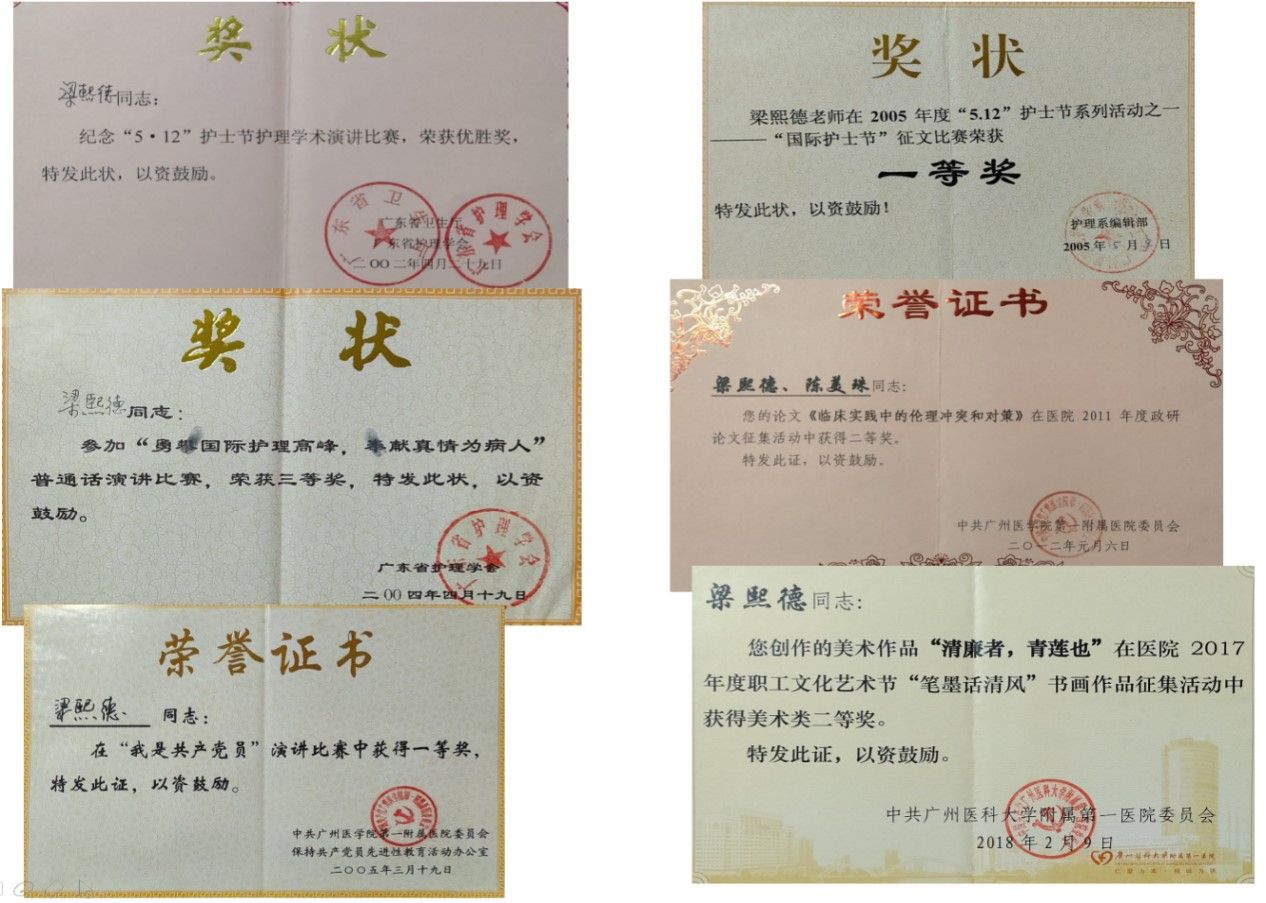 奖 状
梁熙德同志：
纪念“5·12”护士节护理学术演讲比赛，荣获优胜奖，
特发此状，以资鼓励。
广东省卫生厅
广东省护理学会
二OO二年四月二十九日
奖 状
梁熙德同志：
参加“勇攀国际护理高峰，奉献真情为病人”
普通话演讲比赛，荣获三等奖，特发此状，以资
鼓励。
广东省护理学会
广东省护理学会
二00四年四月十九日
荣誉证书
梁熙德 同志：
在“我是共产党员”演讲比赛中获得一等奖，
特发此证，以资鼓励。
中共广州医学院第一附属医院委员会
保持共产党员先进性教育活动办公室
二〇〇五年三月十九日
奖 状
梁熙德老师在 2005 年度“5.12”护士节系列活动之一
———“国际护士节”征文比赛荣获
一等奖
特发此状，以资鼓励！
护理系编辑部
2005 年 5 月 日
荣誉证书
梁熙德、陈美珠同志：
您的论文《临床实践中的伦理冲突和对策》在医院 2011 年度政研
论文征集活动中获得二等奖。
特发此证，以资鼓励。
中共广州医学院第一附属医院委员会
二〇一二年元月六日
梁熙德同志：
您创作的美术作品“清廉者，青莲也”在医院 2017
年度职工文化艺术节“笔墨话清风”书画作品征集活动中
获得美术类二等奖。
特发此证，以资鼓励。
中共广州医科大学附属第一医院委员会
2018 年 2 月 9 日
广州医科大学附属第一医院